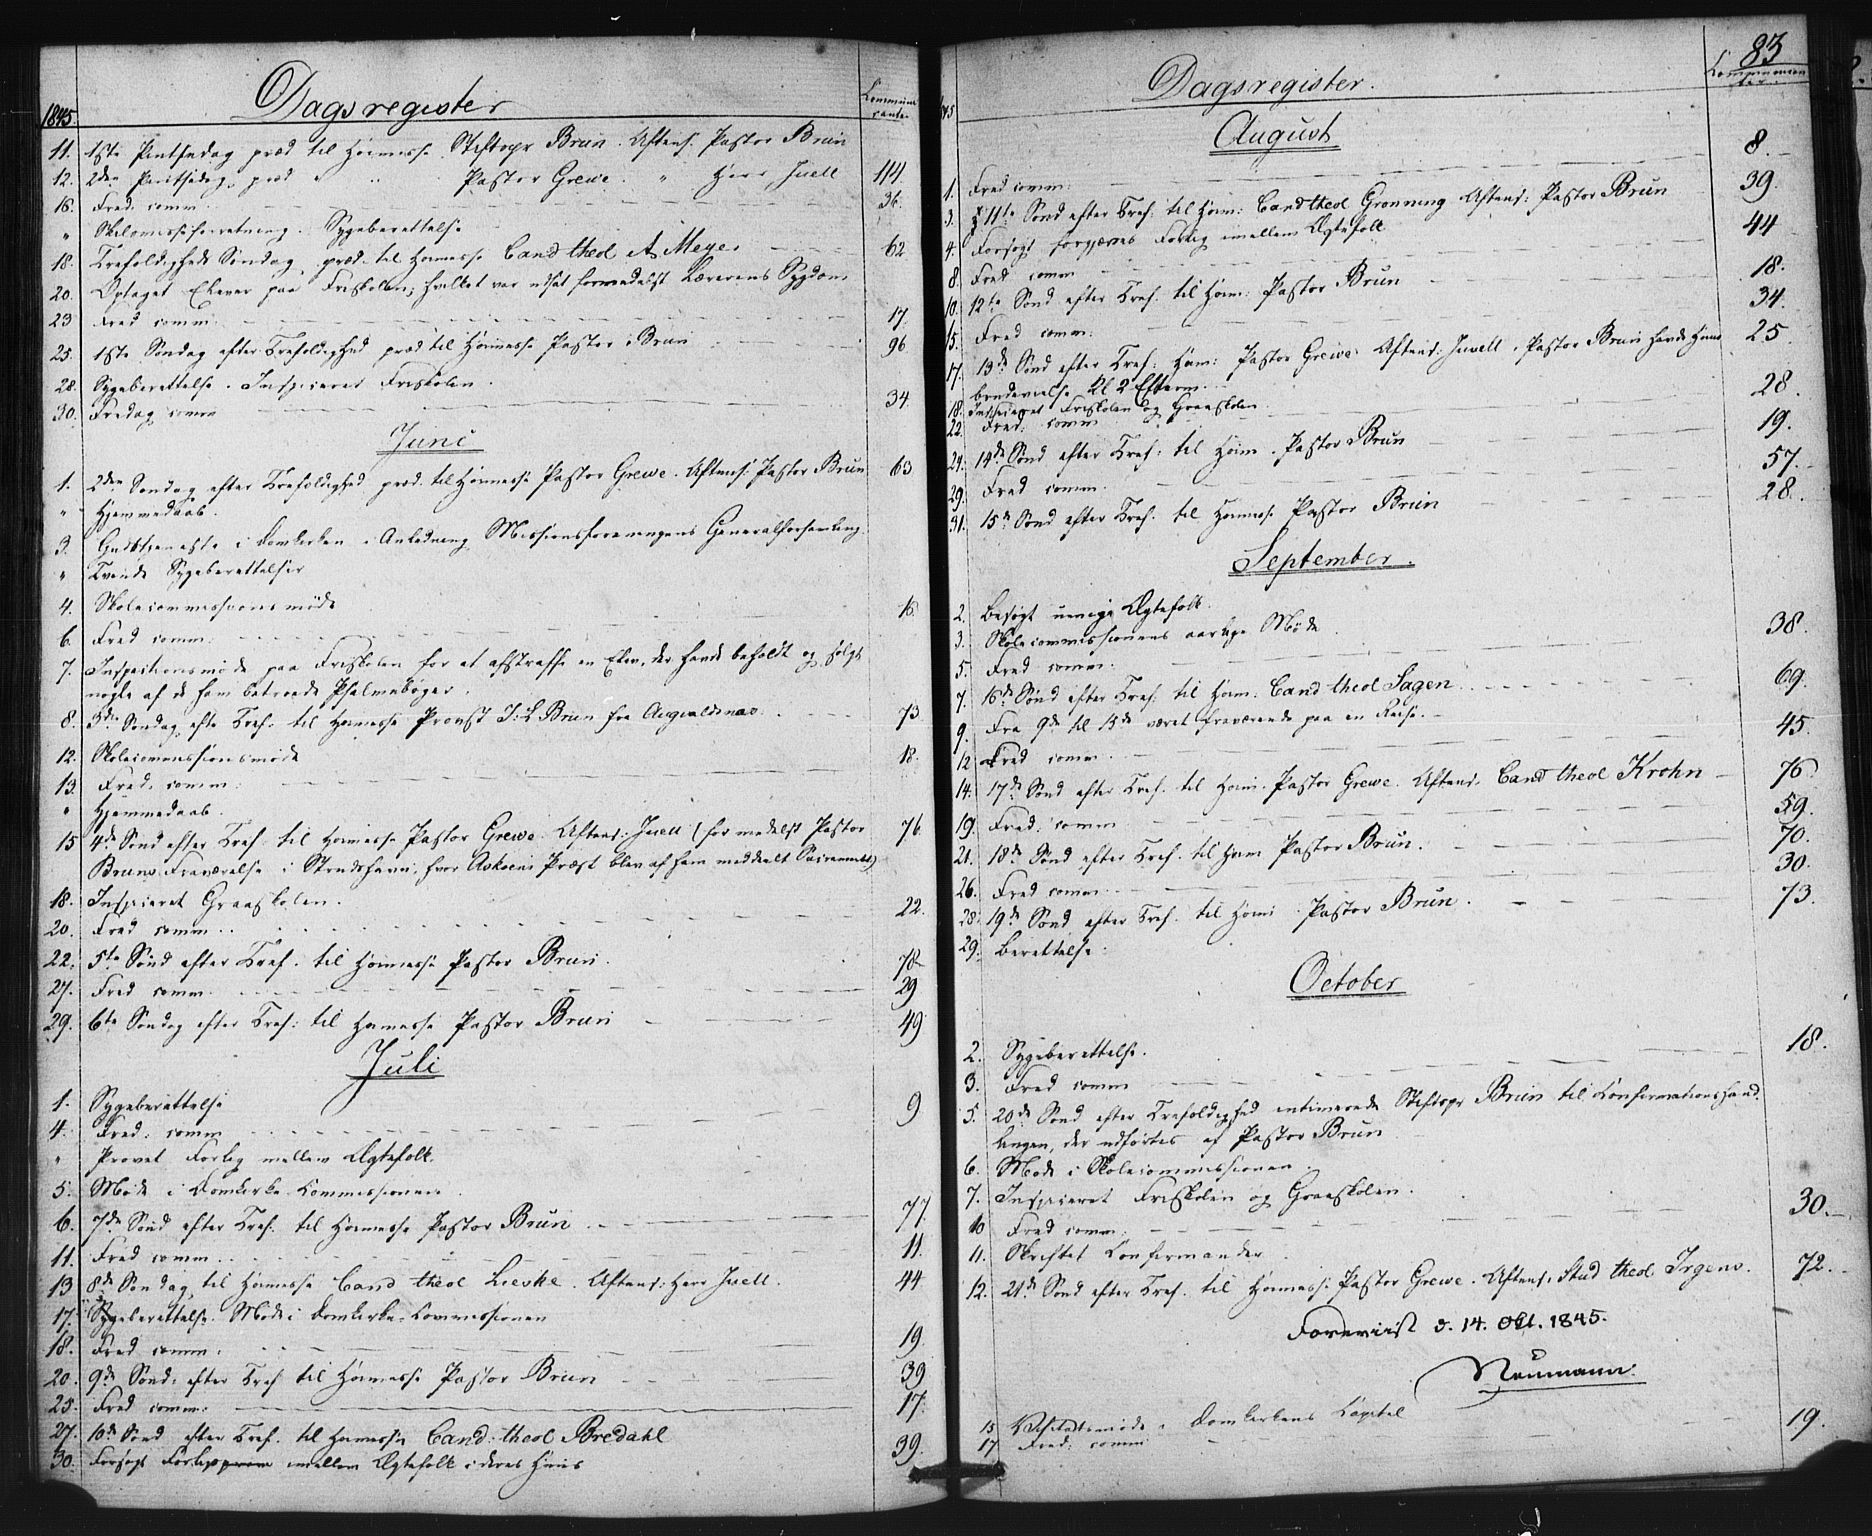 Dagsregister
1845.
Communicanter
11. 1ste Pintsedag præd til Høimesse Stiftspr Brun. Aftens. Pastor Brun
12. 2den Pintsedag, præd " " Pastor Grewe. " Herr Juell 114.
16. Fred. comm. 36.
" Skilsmisseforretning. Sygeberettelse
18. Trefoldigheds Søndag, præd. til Høimesse Cand theol A. Meyer 62
20. Optaget Elever paa Friskolen, hvilket var udsat formedelst Lærerens Sygdom
23 Fred comm. 17.
25. 1ste Søndag efter Trefoldighed præd til Høimesse Pastor Brun 96
28. Sygeberettelse. Inspiceret Friskolen.
30. Fredag comm 34
Juni
1. 2den Søndag efter Trefoldighed præd. til Høimesse Pastor Grewe. Aftens: Pastor Brun 63
" Hjemmedaab.
3. Gudstjeneste i Domkirken i Anledning Missionsforeningens Generalforsamling.
" Tvende Sygeberettelser
4. Skolecommissionsmøde
6. Fred comm: 16.
7. Inspectionsmøde paa Friskolen for at afstraffe en Elev, der havde beholdt og solgt
nogle af de ham betroede Psalmebøger.
8. 3die Søndag efter Tref. til Høimesse Provst J. L Brun fra Augvaldsnæs. 73
12. Skolecommissionsmøde
13. Fred. comm. 18.
" Hjemmedaab.
15 4de Sønd efter Tref. til Høimesse Pastor Grewe. Aftens: Juell (formedelst Pastor 76.
Bruns Fraværelse i Strudshavn, hvor Askøens Præst blev af ham meddeelt Sacramentet)
18. Inspiceret Graaskolen.
20. Fred comm. 22.
22. 5te Sønd efter Tref. til Høimesse Pastor Brun. 78
27. Fred comm. 29
29. 6te Søndag efter Tref: til Høimesse Pastor Brun 49
Juli
1. Sygeberettelse
4. Fred: comm 9
" Prøvet Forlig mellem Ægtefolk.
5. Møde i Domkirke-Commissionen.
6. 7de Sønd efter Tref. til Høimesse Pastor Brun 77.
11. Fred comm. 11.
13 8de Søndag til Høimesse Cand theol Lieske. Aftens: Herr Juell. 44
17. Sygeberettelse. Møde i Domkirke-Commissionen
18. Fred comm. 19.
20. 9de Sønd. efter Tref til Høimesse Pastor Brun 39
25. Fred comm: 17.
27. 10de Sønd efter Tref. til Høimesse Cand. theol Bredahl 39.
30. Forsøgt Forlig imellem Ægtefolk i deres Huus
83
Dagsregister.
1845
Communicanter
August
1. Fred comm: 8.
3. 11te Sønd efter Tref: til Høim: Cand theol Grønning Aftens: Pastor Brun 39.
4. Forsøgt forgjæves Forlig imellem Ægtefolk
8. Fred comm 44
10. 12te Sønd efter Tref. til Høim: Pastor Brun 18.
15. Fred comm. 34.
17. 13de Sønd efter Tref: Høim: Pastor Grewe Aftens: Juell. Pastor Brun havde Huus 25
brudevielse Kl 2 Efterm.
18. Inspiceret Friskolen og Graaskolen.
22. Fred: comm 28.
24. 14de Sønd efter Tref: til Høim. Pastor Brun 19.
29. Fred comm. 57.
31. 15de Sønd efter Tref. til Høimesse Pastor Brun 28.
September.
2. Besøgt uenige Ægtefolk.
3. Skolecommissionens aarlige Møde.
5. Fred comm. 38.
7. 16de Sønd efter Tref. til Høim: Cand theol Sagen 69.
9. Fra 9de til 13de været fraværende paa en Reise.
12 Fred comm. 45.
14. 17de Sønd efter Tref. til Høim. Pastor Grewe. Aftens. Cand theol Krohn 76
19. Fred. comm 59.
21. 18de Sønd efter Tref. til Høim Pastor Brun. 70.
26. Fred comm. 30.
28. 19de Sønd efter Tref. til Høim. Pastor Brun. 73.
29. Berettelse.
October
2. Sygeberettelse.
3. Fred comm 18.
5. 20de Sønd efter Trefoldighed intimerede Stiftspr Brun til Confirmationshand
lingen, der udførtes af Pastor Brun
6. Møde i Skolecommissionen.
7. Inspiceret Friskolen og Graaskolen.
10 Fred comm. 30.
11. Skriftet Confirmander
12. 21de Sønd efter Tref. til Høimesse Pastor Grewe. Aftens. Stud theol Irgens. 72.
Foreviist d. 14. Oct. 1845.
Neumann.
15 Visitatsmøde i Domkirkens Capitel
17 Fred: comm 19.